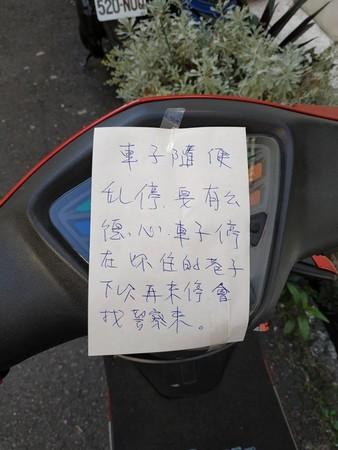 520-NQQ
車子隨便
乱停.要有公
德心.車子停
在妳住的巷子
下次再來停會
找警察來。